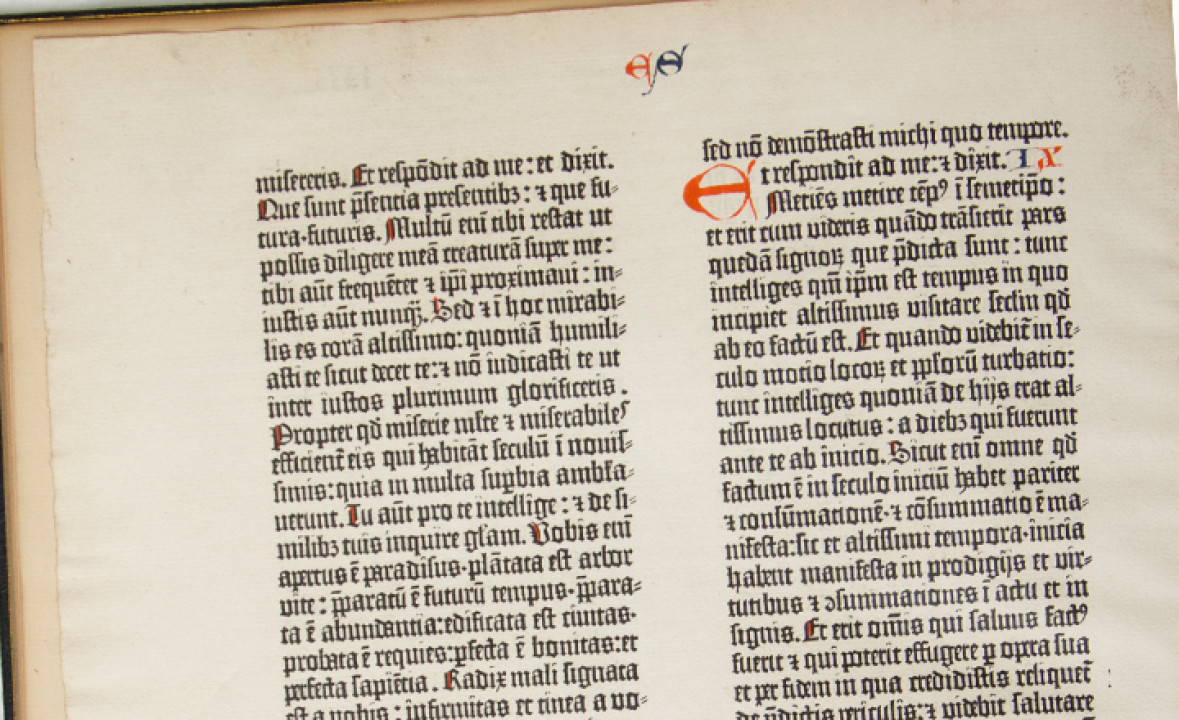 miserēris. Et respōdit ad me: et dixit.
Que sunt p̄sentia presentibꝫ: ⁊ que fu⸗
tura·futuris. Multū enī tibi restat ut
possis diligere meā creaturā super me:
tibi aūt frequēter ⁊ ip̄i proximaui: in⸗
iustis aūt nunq̄ꝫ. Sed ⁊ ī hoc mirabi⸗
lis es corā altissimo: quoniā humili⸗
asti te sicut decet te: ⁊ nō iudicasti te ut
inter iustos plurimum glorificeris.
Propter qd̄ miserie mĺte ⁊ miserabiles
efficient̄ eis qui habitāt seculū ī nouis⸗
simis: quia in multa supbia ambĺa⸗
uerunt. Tu aūt pro te intellige: ⁊ de si⸗
milibꝫ tuis inquire gĺam. Vobis enī
apertus ē paradisus·plātata est arbor
vite: p̄paratū ē futurū tempus·p̄para⸗
ta ē abundantia: edificata est ciuitas·
probata ē requies: ꝑfecta ē bonitas: et
perfecta sapiētia. Radix mali signata
est a vobis: infirmitas et tinea a vo⸗
sed nō demōstrasti michi quo tempore.
Et respondit ad me: ⁊ dixit. IX
Metiēs metire tēpꝰ ī semetip̄o:
et erit cum videris quādo trāsierit pars
quedā signoꝝ que p̄dicta sunt: tunc
intelliges qm̄ ip̄m est tempus in quo
incipiet altissimus visitare seclm qd̄
ab eo factū est. Et quando videbit̄ in se⸗
culo motio locoꝝ et pp̄lorū turbatio:
tunc intelliges quoniā de hijs erat al⸗
tissimus locutus: a diebꝫ qui fuerunt
ante te ab inicio. Sicut enī omne qd̄
factum ē in seculo iniciū habet pariter
⁊ consūmationē·⁊ cōsummatio ē ma⸗
nifesta: sic et altissimi tempora·inicia
habent manifesta in prodigijs et vir⸗
tutibus ⁊ ↄsummationes ī actu et in
signis. Et erit om̄is qui saluus factꝰ
fuerit ⁊ qui poterit effugere ꝑ opera sua
et per fidem in qua credidistis relinquet̄
de p̄dictis periculis: ⁊ videbit salutare